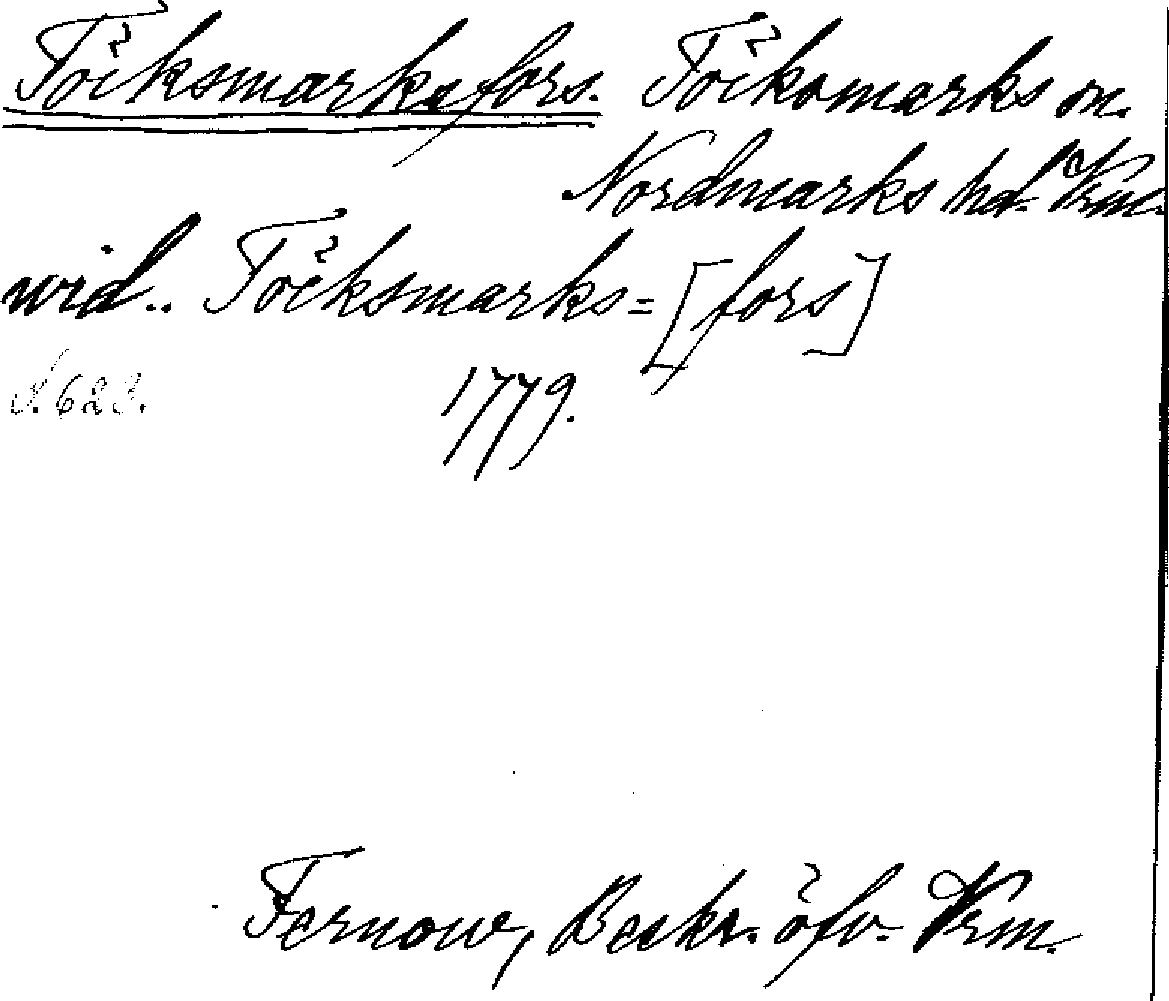 Töcksmarksfors. Töcksmarks sn.
Nordmarks hd. Vrm.
wid.. Töcksmarks=[fors]
S. 623. 1779.
Fernow, Beskr. öfv. Vrm.